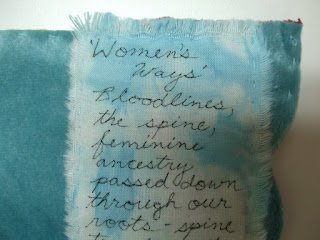 'Women's
Ways'
Bloodlines,
the spine,
feminine
ancestry
passed down
through our
roots - spine